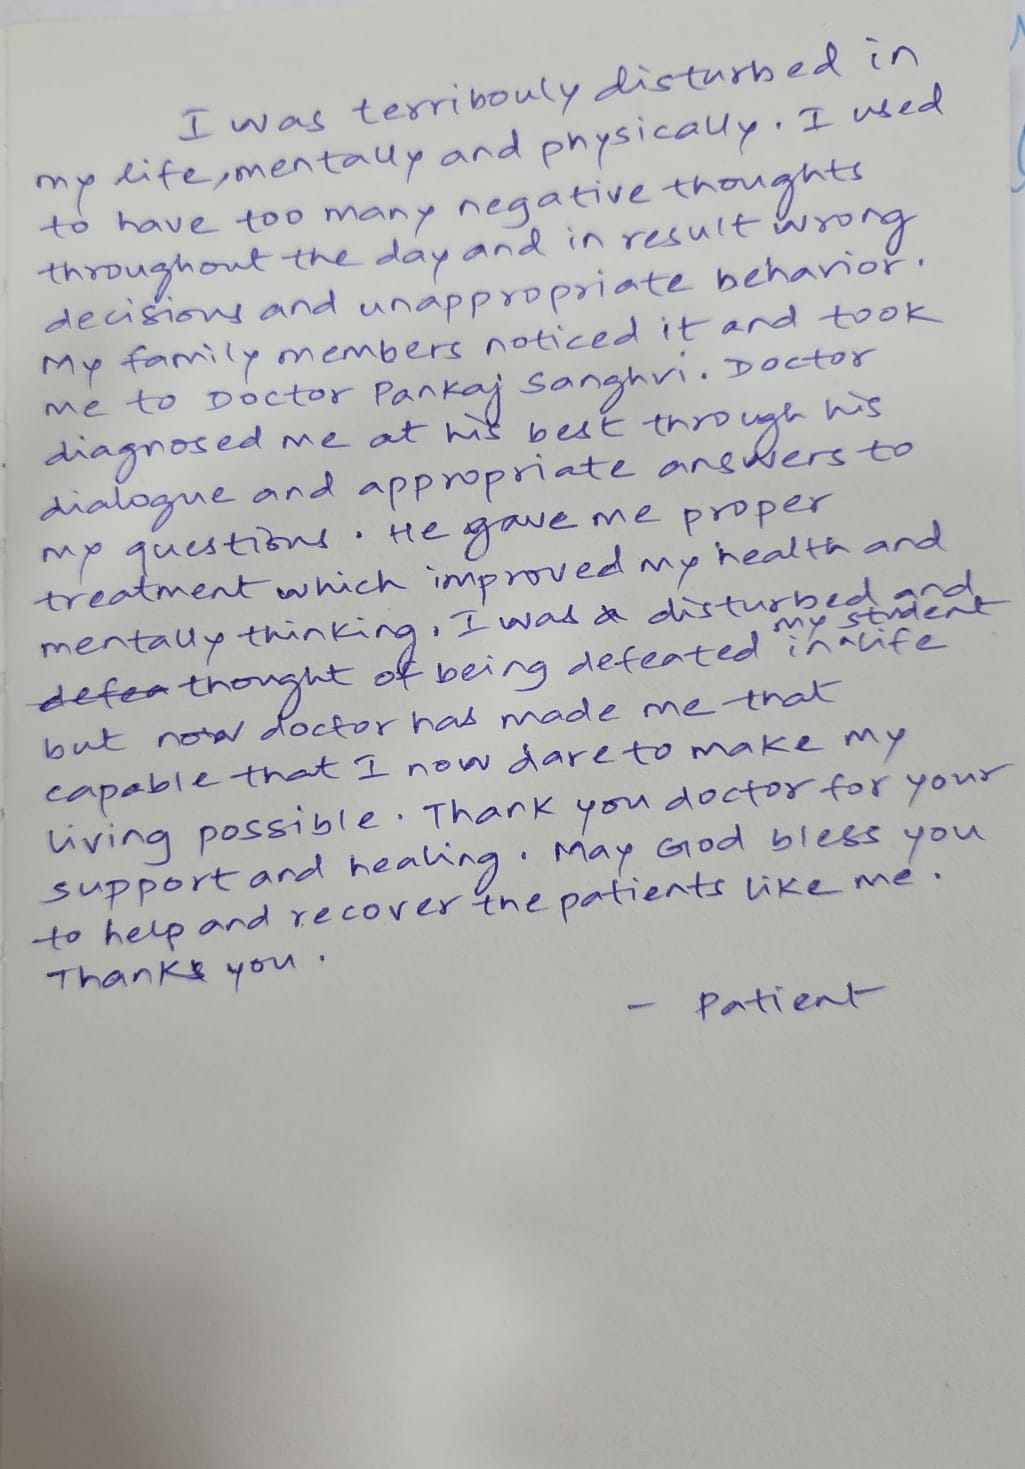 I was terribouly disturbed in
my life, mentally and physically. I used
to have too many negative thoughts
throughout the day and in result wrong
decisions and unappropriate behavior.
My family members noticed it and took
me to Doctor Pankaj Sanghvi. Doctor
diagnosed me at his best through his
dialogue and appropriate answers to
my questions. He gave me proper
treatment which improved my health and
mentally thinking. I was a disturbed and
defea thought of being defeated in my student life
but now doctor has made me that
capable that I now dare to make my
living possible. Thank you doctor for your
support and healing. May God bless you
to help and recover the patients like me.
Thanks you.
- Patient